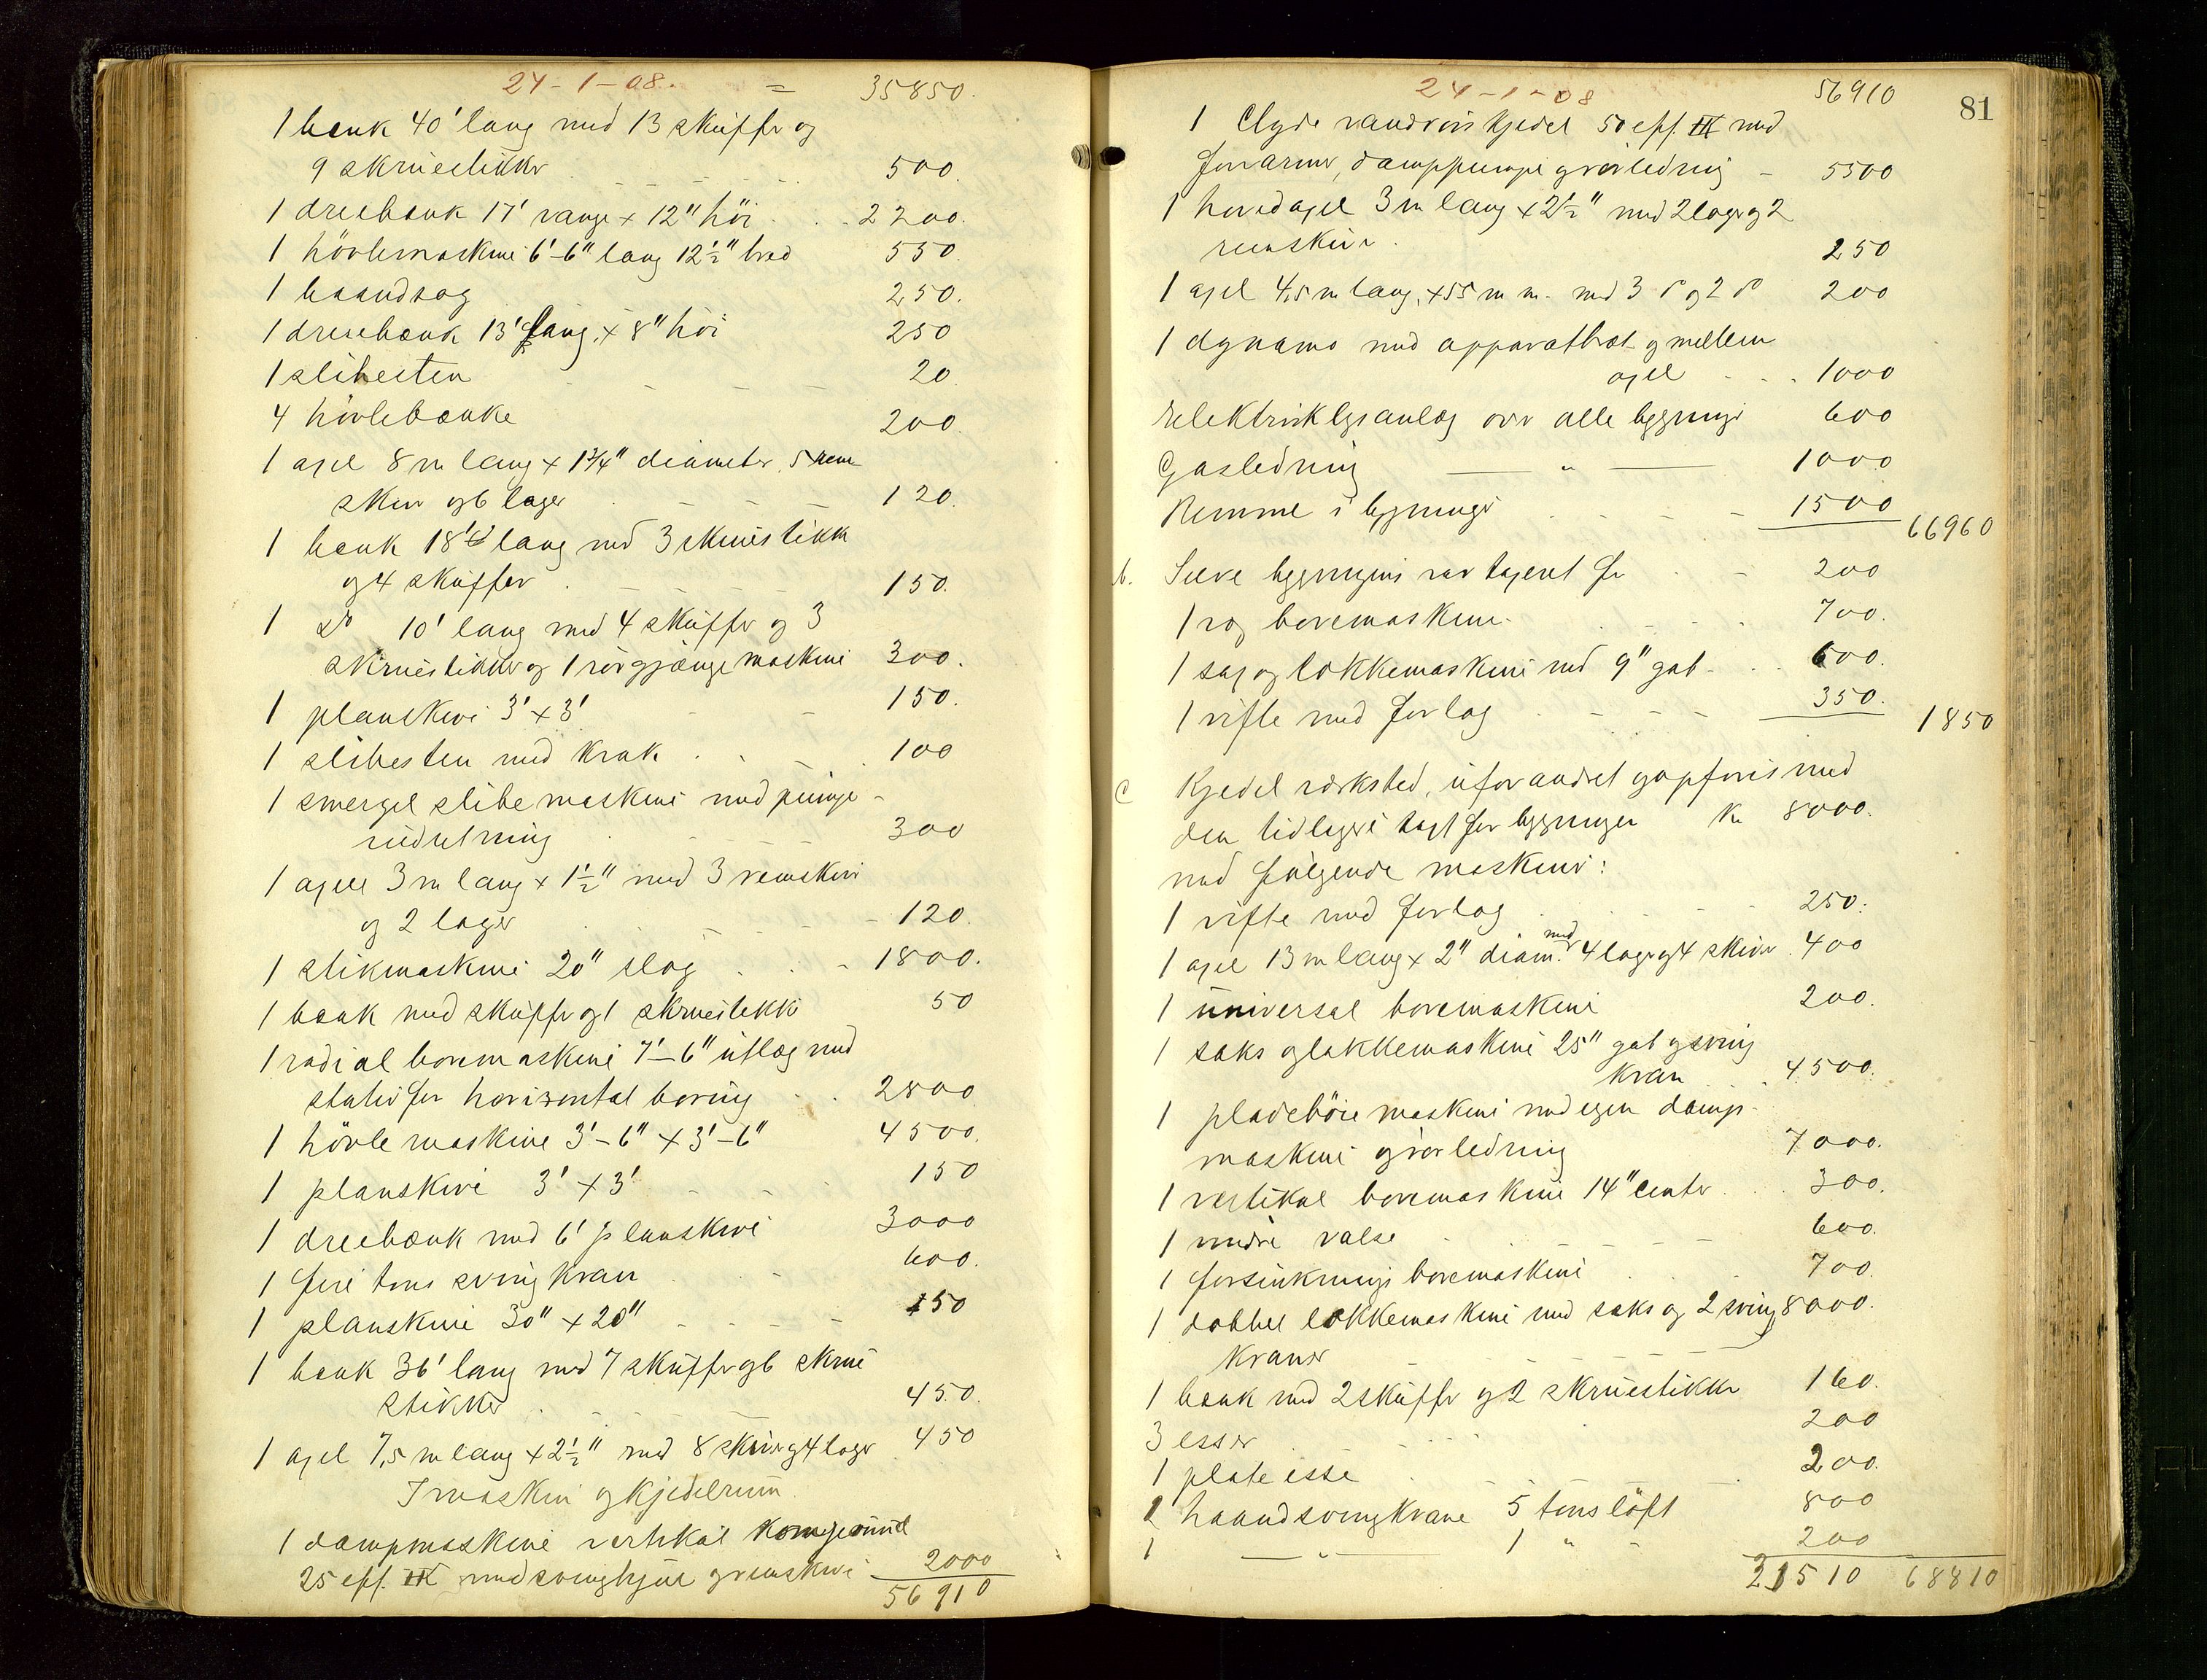 24-1-08. = 35850.
1 bænk 40' lang med 13 skuffer og
9 skruestikker 500.
1 dreebænk 17' vange x 12" höi 2200.
1 hövlemaskine 6'-6" lang 12½" bred 550.
1 baandsag 250.
1 dreiebænk 13' lang x 8" höi 250
1 slibesten 20
4 hövlebænke 200
1 axel 8 m lang x 1¾" diameter, 5 rem-
skiver og 6 lager 120.
1 bænk 18' lang med 3 skruestikker
og 4 skuffer 150.
1 do 10' lang med 4 skuffer og 3
skruestikker og 1 rörgjænge maskine 300.
1 planskive 3' x 3' 150.
1 slibesten med krak 100
1 smergel slibemaskine med pumpe-
indretning 300
1 axel 3 m lang x 1½" med 3 remskiver
og 2 lager 120.
1 stikmaskine 20" slag 1800.
1 bænk med skuffer og 1 skruestikke 50
1 radial boremaskine 7'-6" utlæg med
stativ for horisontal boring 2800
1 hövlemaskine 3'-6" x 3'-6" 4500.
1 planskive 3' x 3' 150
1 dreebænk med 6' planskive 3000
1 fire tons svingkran 600.
1 planskive 30" x 20" 150
1 bænk 36' lang med 7 skuffer og 6 skrue
stikker 450.
1 axel 7,5 m lang x 2½" med 8 skiver og 4 lager 450
I maskin og kjedelrum
1 dampmaskine vertikal kompound
25 eff. HK med svinghjul og remskive 2000
56910
24-1-08 56910
81
1 Clyde vandrörskjedel 50 eff. HK med
forvarmer, damppumpe og rörledning 5500
1 hovedaxel 3 m lang x 2½" med 2 lager og 2
remskiver 250
1 axel 4,5 m lang x 55 m m. med 3 do og 2 do 200
1 dynamo med apparatbræt og mellem
axel 1000
Elektrisk lysanlæg over alle bygninger 600
Gasledning — " — 1000
Remme i bygninger 1500
66960
b. Selve bygningens var taxeret for 200
1 rog boremaskine 700.
1 sax og lokkemaskine med 9" gab 600.
1 vifte med forlag 350.
1850
c Kjedel værksted, uforandret og opføres med
den tidligere taxt for bygninger Kr 8000.
med følgende maskiner:
1 vifte med forlag 250.
1 axel 13 m lang x 2" diam. med 4 lager og 4 skiver 400
1 universal boremaskine 200.
1 saks og lokkemaskine 25" gab og sving
kran 4500.
1 pladeböiemaskine med egen damp-
maskine og rörledning 7000.
1 vertikal boremaskine 14" center 300.
1 mindre valse 600.
1 forsinknings boremaskine 700.
1 dobbel lokkemaskine med saks og 2 sving 8000.
kraner
1 bænk med 2 skuffer og 2 skruestikker 160.
3 esser 200
1 plate esse 200.
2 haandsvingkrane 5 tons löft 800
1 — " — 1 " " 200
31510 68810